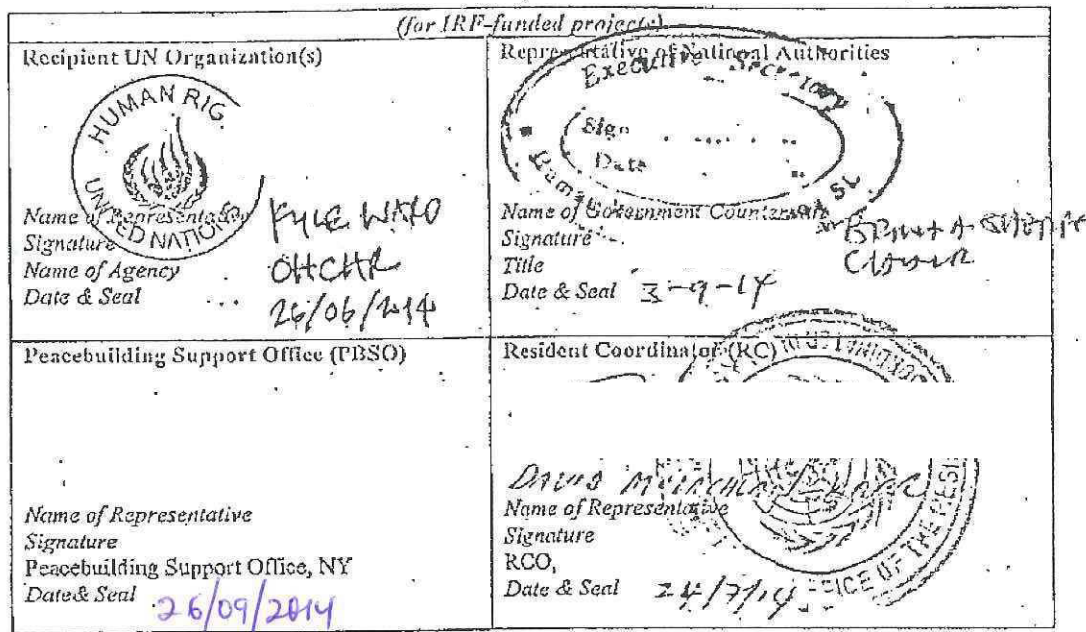 (for IRF-funded projects)
Recipient UN Organization(s)
HUMAN RIG
UNITED NATIONS
Name of Representative
Signature
Name of Agency OHCHR
Date & Seal 26/06/2014
Representative of National Authorities
Executive Secretary
Sign
Date
SL
Name of Government Counterpart
Signature
Title
Date & Seal 3-9-14
Peacebuilding Support Office (PBSO)
Name of Representative
Signature
Peacebuilding Support Office, NY
Date& Seal 26/09/2014
Resident Coordinator (RC)
DAVID
Name of Representative
Signature
RCO,
Date & Seal 24/7/14
OF THE RESI